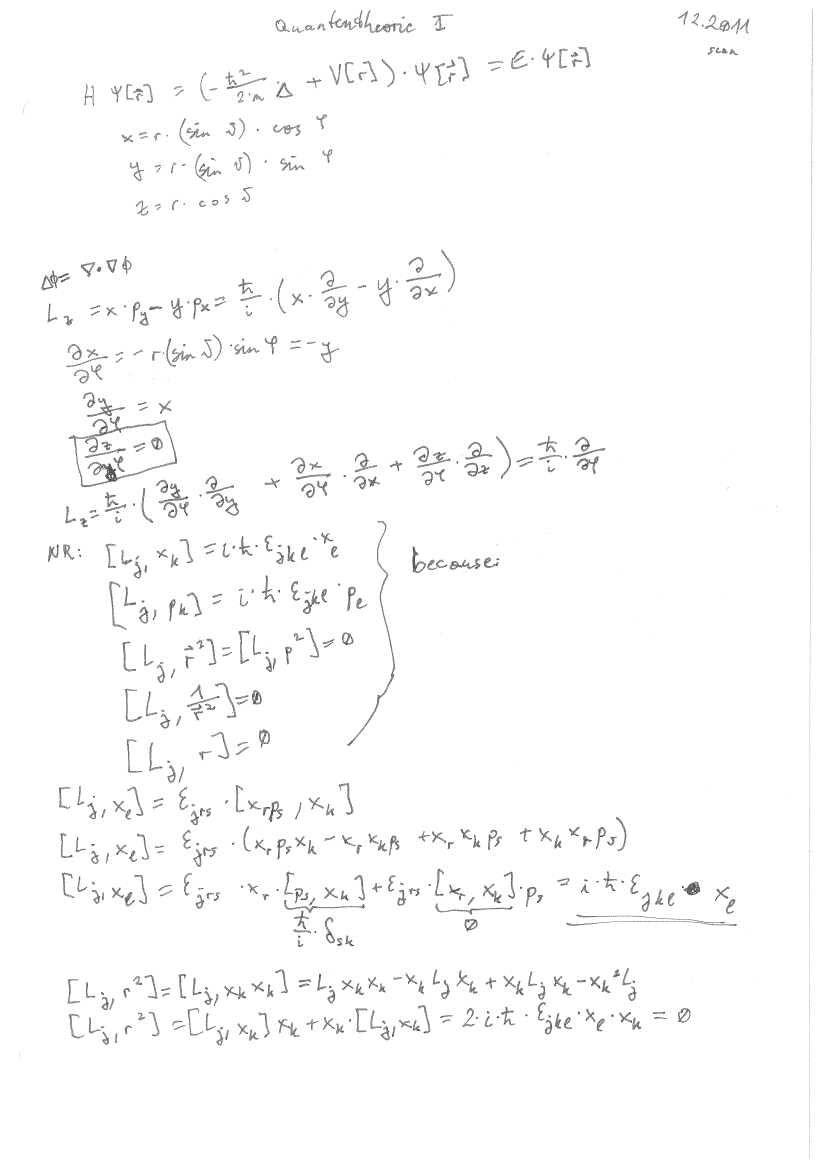 Quantentheorie I
12.2011
scan
H Ψ[r⃗] = (-ħ²/2·m · Δ + V[r]) · Ψ[r⃗] = E · Ψ[r⃗]
x = r · (sin ϑ) · cos φ
y = r · (sin ϑ) · sin φ
z = r · cos ϑ
Δϕ = ∇·∇ϕ
L_z = x·p_y - y·p_x = ħ/i · (x · ∂/∂y - y · ∂/∂x)
∂x/∂φ = -r (sin ϑ) · sin φ = -y
∂y/∂φ = x
∂z/∂φ = 0
L_z = ħ/i · (∂y/∂φ · ∂/∂y + ∂x/∂φ · ∂/∂x + ∂z/∂φ · ∂/∂z) = ħ/i · ∂/∂φ
NR: [L_j, x_k] = i·ħ·ε_jkl · x_l
because:
[L_j, p_k] = i·ħ·ε_jkl · p_l
[L_j, r⃗²] = [L_j, p²] = 0
[L_j, 1/r⃗²] = 0
[L_j, r] = 0
[L_j, x_l] = ε_jrs · [x_r p_s, x_k]
[L_j, x_l] = ε_jrs · (x_r p_s x_k - x_r x_k p_s + x_r x_k p_s + x_k x_r p_s)
[L_j, x_l] = ε_jrs · x_r · [p_s, x_k] + ε_jrs · [x_r, x_k] · p_s = i·ħ·ε_jkl · x_l
ħ/i · δ_sk 0
[L_j, r²] = [L_j, x_k x_k] = L_j x_k x_k - x_k L_j x_k + x_k L_j x_k - x_k² L_j
[L_j, r²] = [L_j, x_k] x_k + x_k · [L_j, x_k] = 2·i·ħ · ε_jkl · x_l · x_k = 0